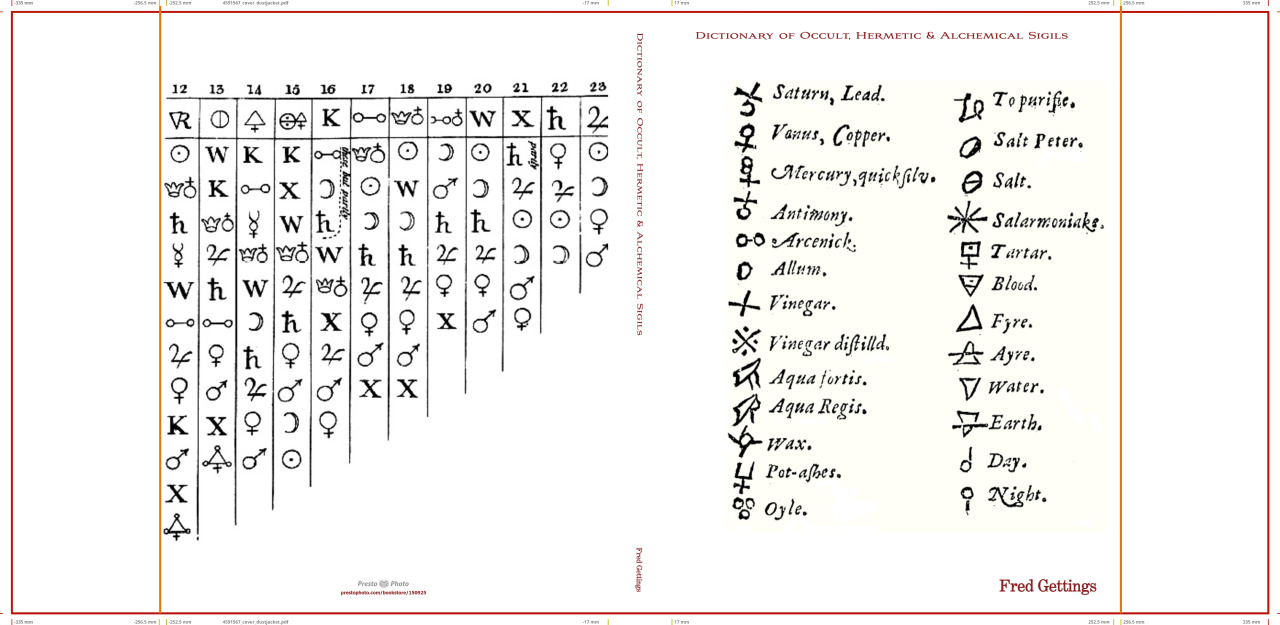 -335 mm -256.5 mm -252.5 mm 4591567_cover_dustjacket.pdf -17 mm 17 mm 252.5 mm 256.5 mm 335 mm
12 13 14 15 16 17 18 19 20 21 22 23
K W X
W K K these, but partly partly
K X W
W
W
W W
X X
X X
K X
X
Presto Photo
prestophoto.com/bookstore/150925
Dictionary of Occult, Hermetic & Alchemical Sigils
Fred Gettings
Dictionary of Occult, Hermetic & Alchemical Sigils
Saturn, Lead.
Venus, Copper.
Mercury, quickſilv.
Antimony.
Arcenick.
Allum.
Vinegar.
Vinegar diſtilld.
Aqua fortis.
Aqua Regis.
Wax.
Pot-aſhes.
Oyle.
To purifie.
Salt Peter.
Salt.
Salarmoniake.
Tartar.
Blood.
Fyre.
Ayre.
Water.
Earth.
Day.
Night.
Fred Gettings
-335 mm -256.5 mm -252.5 mm 4591567_cover_dustjacket.pdf -17 mm 17 mm 252.5 mm 256.5 mm 335 mm